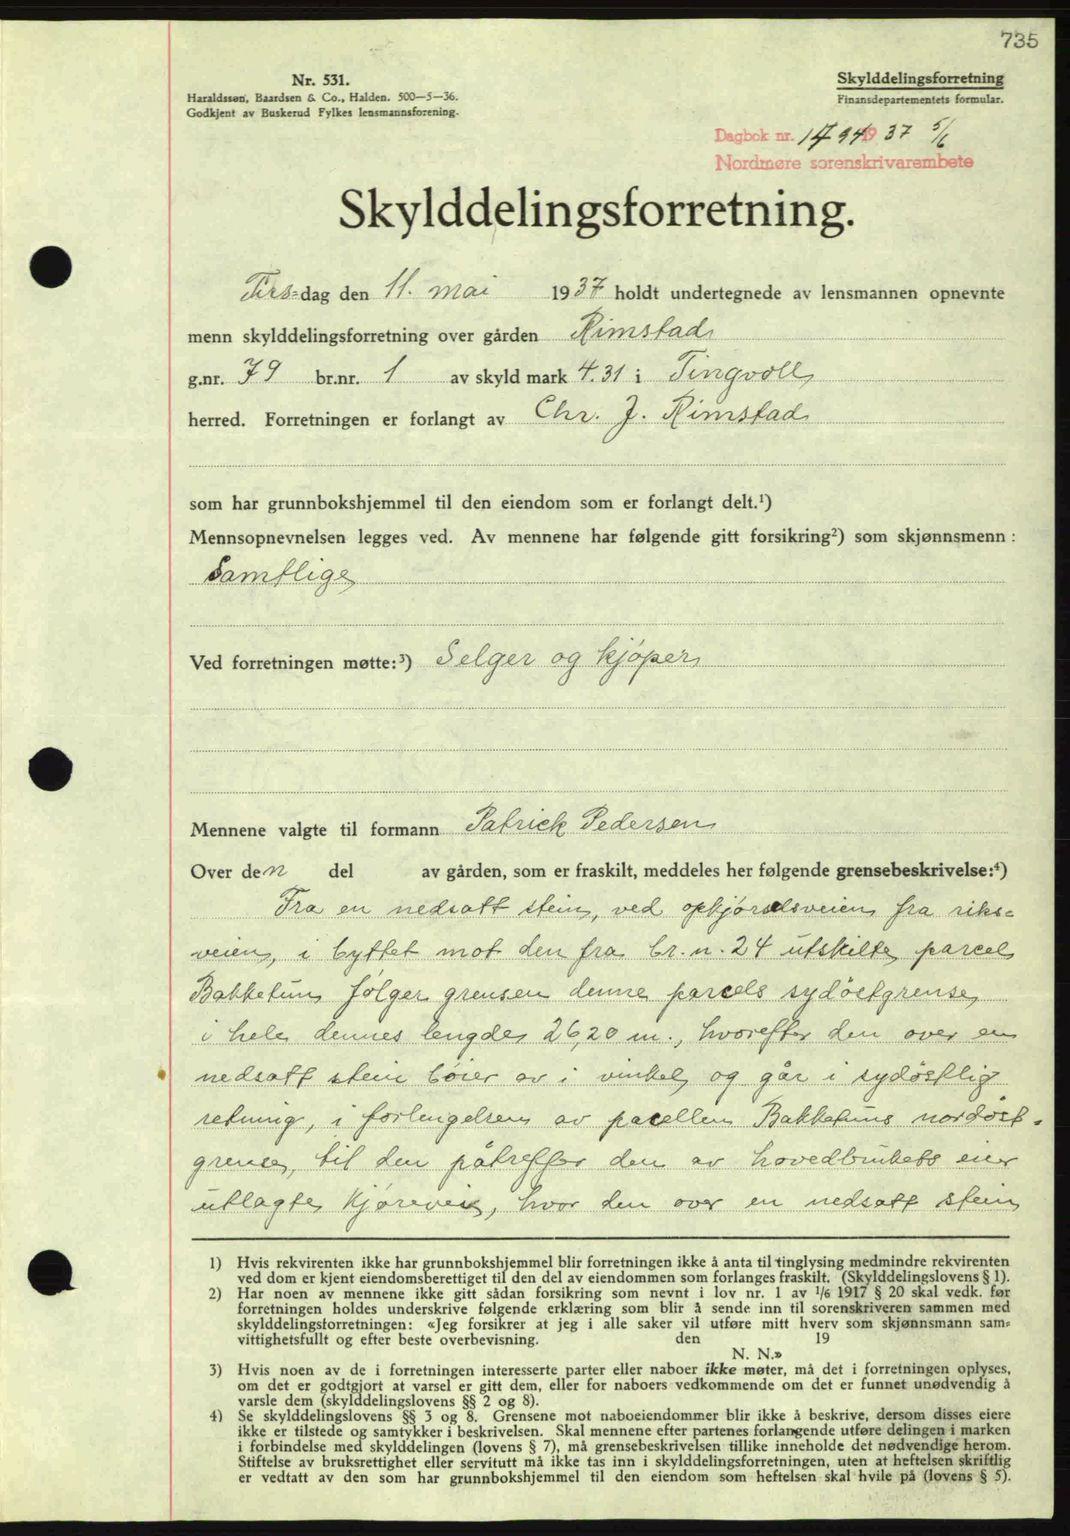 735
Nr. 531.
Haraldssøn, Baardsen & Co., Halden. 500—5—36.
Godkjent av Buskerud Fylkes lensmannsforening.
Skylddelingsforretning
Finansdepartementets formular.
Dagbok nr. 1794 1937 5/6
Nordmøre sorenskrivarembete
Skylddelingsforretning.
Tirs-dag den 11. mai 1937 holdt undertegnede av lensmannen opnevnte
menn skylddelingsforretning over gården Rimstad
g.nr. 79 br.nr. 1 av skyld mark 4.31 i Tingvoll
herred. Forretningen er forlangt av Chr. J. Rimstad
som har grunnbokshjemmel til den eiendom som er forlangt delt.¹)
Mennsopnevnelsen legges ved. Av mennene har følgende gitt forsikring²) som skjønnsmenn:
Samtlige
Ved forretningen møtte:³) Selger og kjøper
Mennene valgte til formann Patrick Pedersen
Over den del av gården, som er fraskilt, meddeles her følgende grensebeskrivelse:⁴)
Fra en nedsatt stein, ved opkjørselsveien fra riks=
veien, i byttet mot den fra br.n. 24 utskilte parcel
Bakketun følger grensen denne parcels sydöstgrense
i hele dennes lengde 26,20 m., hvorefter den over en
nedsatt stein böier av i vinkel og går i sydöstlig
retning, i forlengelsen av parcellen Bakketuns nordöst-
grense, til den påtreffer den av hovedbrukets eier
utlagte kjørevei, hvor den over en nedsatt stein
1) Hvis rekvirenten ikke har grunnbokshjemmel blir forretningen ikke å anta til tinglysing medmindre rekvirenten
ved dom er kjent eiendomsberettiget til den del av eiendommen som forlanges fraskilt. (Skylddelingslovens § 1).
2) Har noen av mennene ikke gitt sådan forsikring som nevnt i lov nr. 1 av 1/6 1917 § 20 skal vedk. før
forretningen holdes underskrive følgende erklæring som blir å sende inn til sorenskriveren sammen med
skylddelingsforretningen: «Jeg forsikrer at jeg i alle saker vil utføre mitt hverv som skjønnsmann sam=
vittighetsfullt og efter beste overbevisning. den 19
N. N.»
3) Hvis noen av de i forretningen interesserte parter eller naboer ikke møter, må det i forretningen oplyses,
om det er godtgjort at varsel er gitt dem, eller for naboers vedkommende om det er funnet unødvendig å
varsle dem (skylddelingslovens §§ 2 og 8).
4) Se skylddelingslovens §§ 3 og 8. Grensene mot naboeiendommer blir ikke å beskrive, dersom disses eiere
ikke er tilstede og samtykker i beskrivelsen. Skal mennene efter partenes forlangende utføre delingen i marken
i forbindelse med skylddelingen (lovens § 7), må grensebeskrivelsen tillike inneholde det nødvendige herom.
Stiftelse av bruksrettighet eller servitutt må ikke tas inn i skylddelingsforretningen, uten at heftelsen skriftlig
er vedtatt av den som har grunnbokshjemmel til den eiendom som heftelsen skal hvile på (lovens § 5).